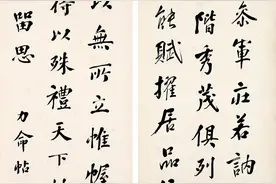 叅軍莊若訥
階秀茂俱列
能賦擢居品
以無所立惟幄
待以殊禮天下
留思 力命帖